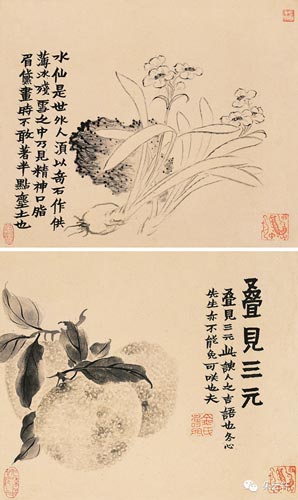 水仙是世外人須以奇石作供
薄冰殘雪之中乃見精神口脂
眉黛畫時不敢著半點塵土也
疊見三元
疊見三元此諛人之吉語也冬心
先生亦不能免可咲也夫